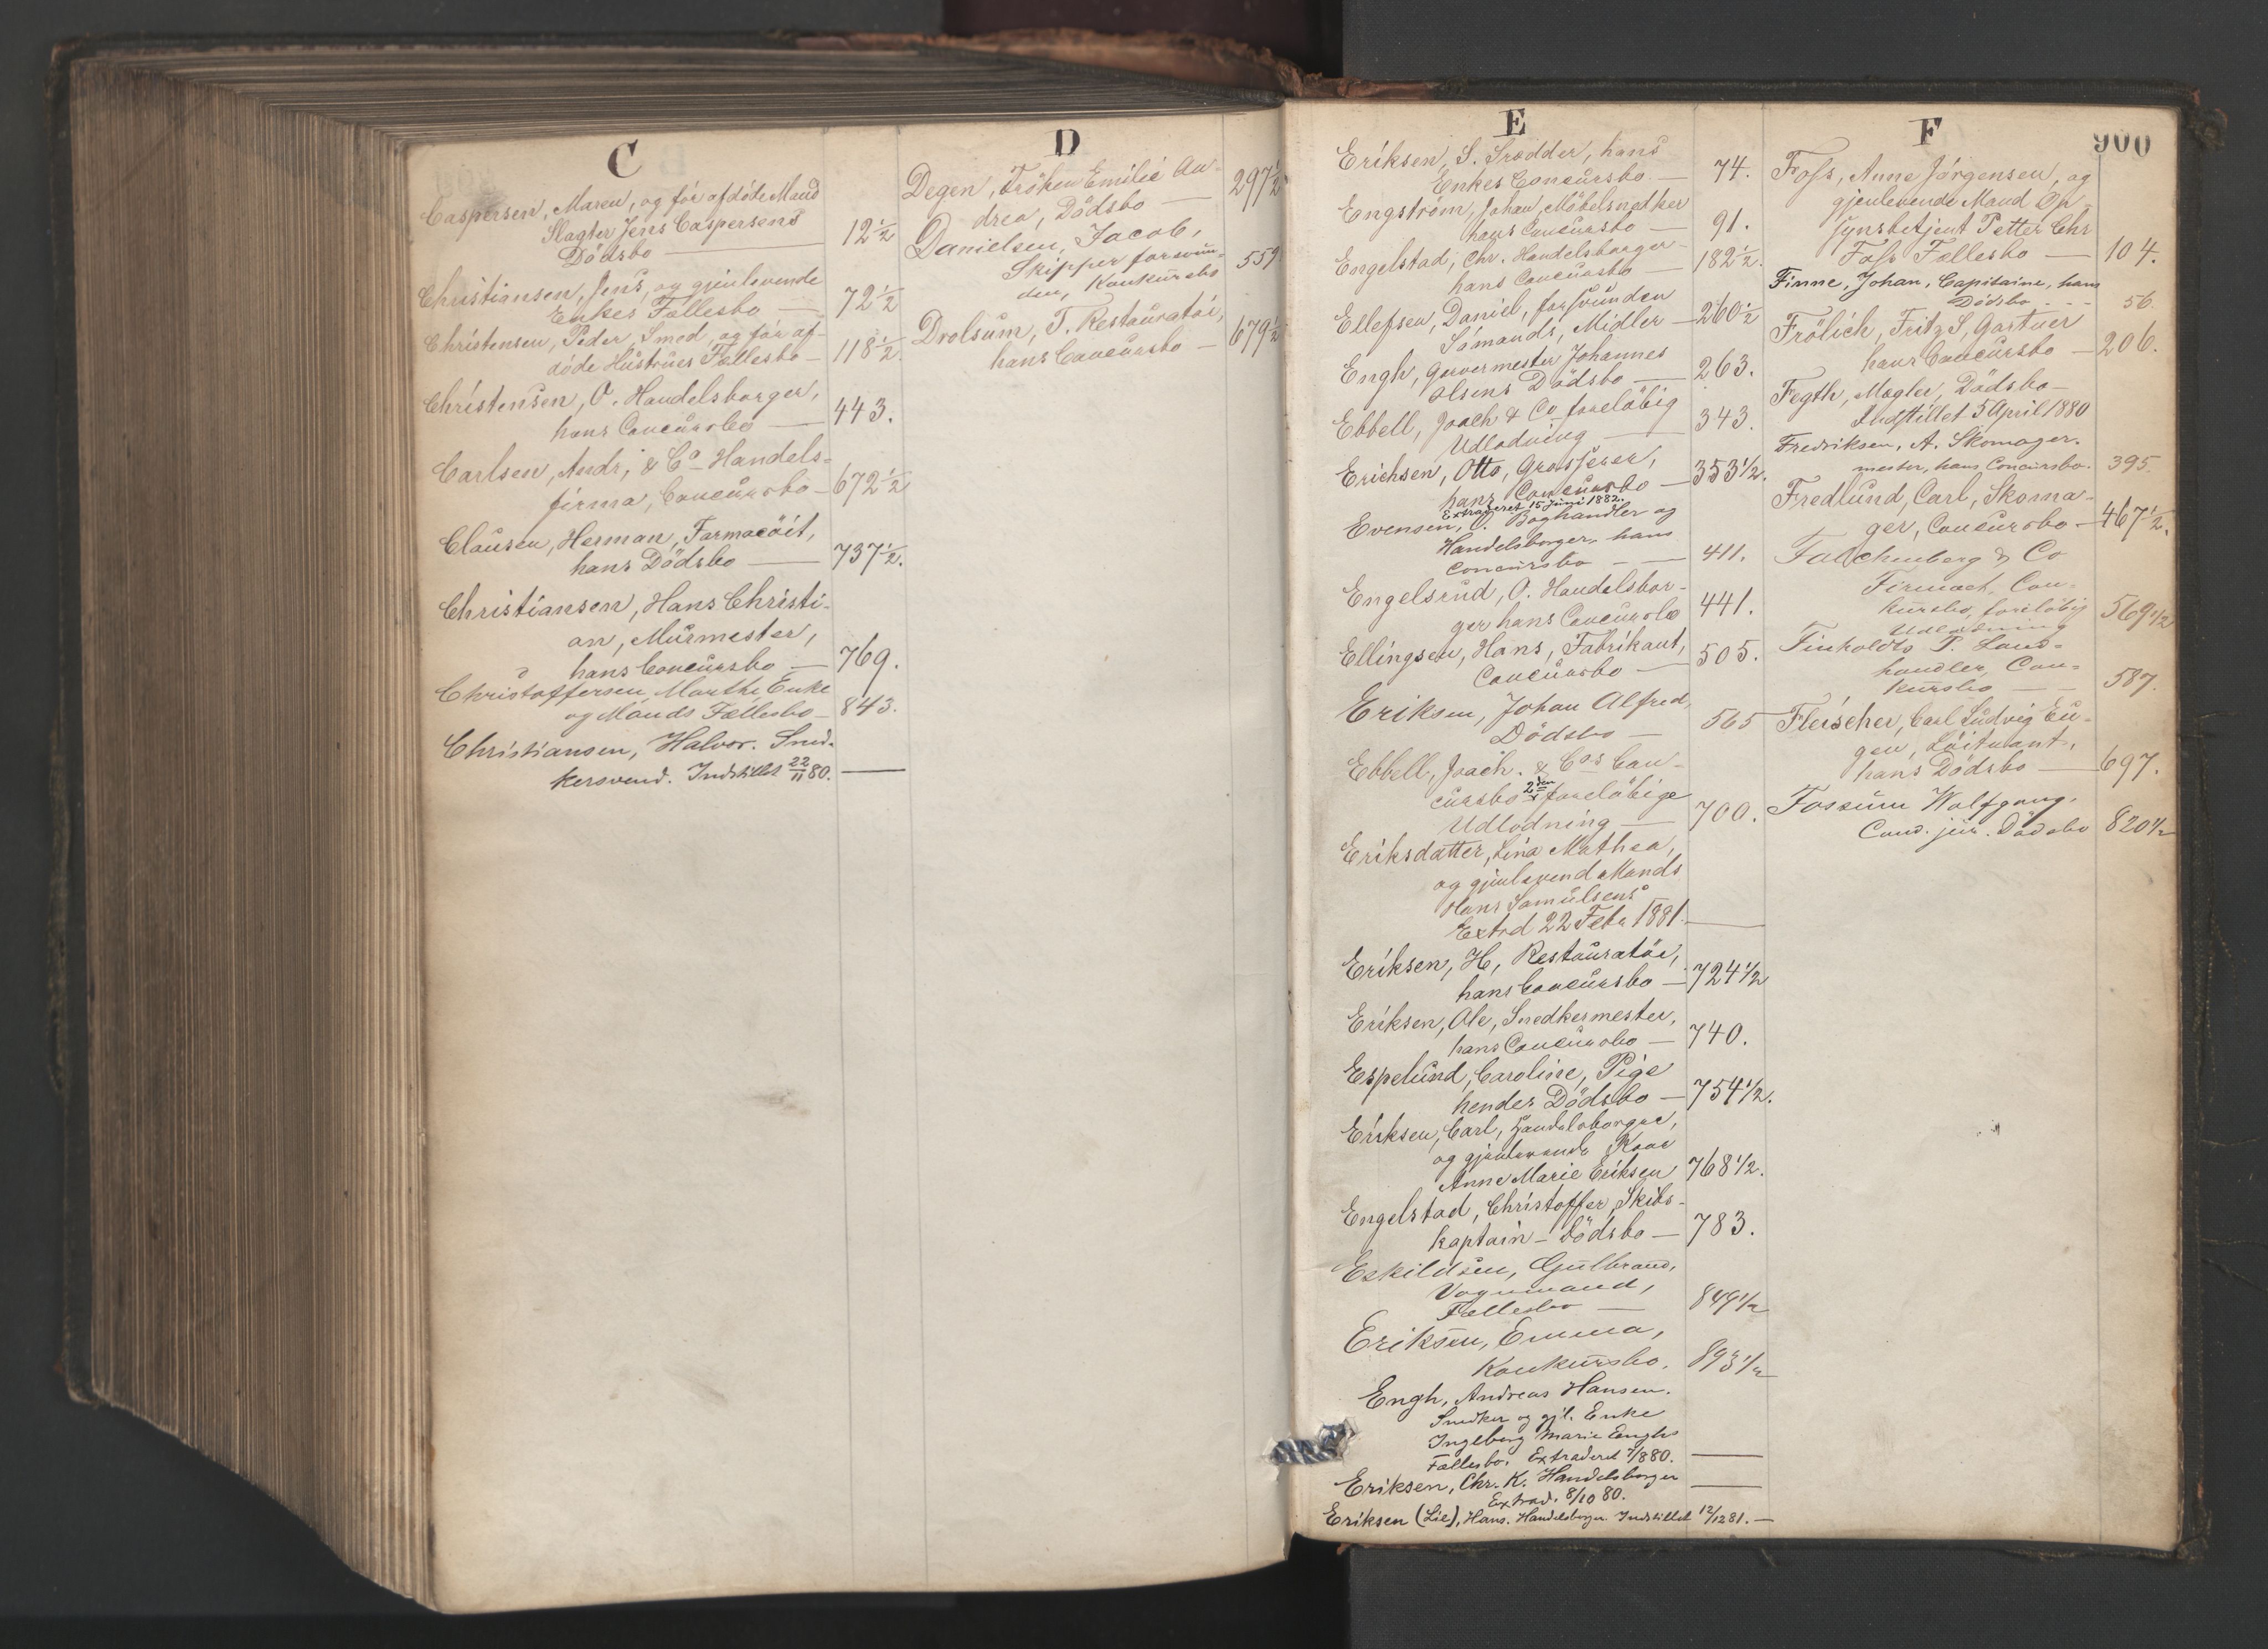 C
Caspersen, Maren, og før afdøde Mand
Slagter Jens Caspersens
Dödsbo — 12½
Christiansen, Jens, og gjenlevende
Enkes Fællesbo — 72½
Christensen, Peder, Smed, og før af-
døde Hustrues Fællesbo — 118½.
Christensen, O. Handelsborger,
hans Concursbo — 443.
Carlsen, Andr. & Co Handels-
firma, Concursbo — 672½
Clausen, Herman, Farmacöit,
hans Dödsbo — 737½.
Christiansen, Hans Christi-
an, Murmester,
hans Concursbo — 769.
Christoffersen, Marthe, Enke
og Mands Fællesbo — 843.
Christiansen, Halvor. Sned-
kersvend. Indstillet 22/11 80. —
D
Degen, Fröken Emilie An-
drea, Dödsbo — 297½
Danielsen, Jacob,
Skipper forsvun-
den, Konkursbo 559.
Drolsum, T. Restauratör,
hans Concursbo — 679½
E
Eriksen, S. hans
Enkes Concursbo. — 74.
Engström, Johan, Möbelsnedker
hans Concursbo — 91.
Engelstad, Chr. Handelsborger
hans Concursbo — 182½.
Ellefsen, Daniel, forsvunden
Sömands, Midler — 260½
Engh, Garvermester Johannes
Olsens Dödsbo — 263.
Ebbell, Joach & Co foreløbig
Udlodning — 343.
Erichsen, Otto, Grosserer,
hans Concursbo — 353½.
Extraderet 15 Juni 1882.
Evensen, O. Boghandler og
Handelsborger, hans
Concursbo — 411.
Engelsrud, O. Handelsbor-
ger hans Concursbo 441.
Ellingsen, Hans, Fabrikant,
Concursbo — 505.
Eriksen, Johan Alfred,
Dödsbo — 565
Ebbell, Joach. & Cos Con-
cursbo 2den foreløbige
Udlodning — 700.
Eriksdatter, Lina Mathea,
og gjenlevend Mands
Hans Samuelsens
Extrd 22 Febr 1881. —
Eriksen, H, Restauratör,
hans Concursbo — 724½
Eriksen, Ole, Snedkermester,
hans Concursbo — 740.
Espelund, Caroline, Pige
hendes Dödsbo — 754½.
Eriksen, Carl, Handelsborger,
og gjenlevende Kone
Anne Marie Eriksen 768½.
Engelstad, Christoffer, Skibs-
kaptain - Dödsbo — 783.
Eskildsen, Gulbrand,
Vognmand,
Fællesbo — 849½
Eriksen, Emma,
Konkursbo. 893½
Engh, Andreas Hansen.
Snedker og gjl. Enke
Ingeborg Marie Enghs
Fællesbo. Extraderet 7/8 80. —
Eriksen, Chr. K. Handelsborger —
Extrad. 8/10 80.
Eriksen (Lie), Hans. Handelsborger Indstillet 12/12 81. —
F 900
Foss, Anne Jørgensen, og
gjenlevende Mand Op-
synsbetjent Petter Chr
Foss Fællesbo — 104.
Finne, Johan, Capitaine, hans
Dödsbo - - - 56.
Frölich, Fritz S, Gartner
hans Concursbo — 206.
Fegth, Mægler, Dödsbo —
Indstillet 5 April 1880
Fredriksen, A. Skomager-
mester, hans Concursbo. 395.
Fredlund, Carl, Skoma-
ger, Concursbo — 467½.
& Co
Con-
kursbo, foreløbig
Udlodning 569½
Finholdts P. Land-
handler, Con-
kursbo — 587.
Fleischer, Carl Ludvig Eu-
gen, Löitnant,
hans Dödsbo — 697.
Fossum Wolfgang,
Cand. jur. Dödsbo 820½